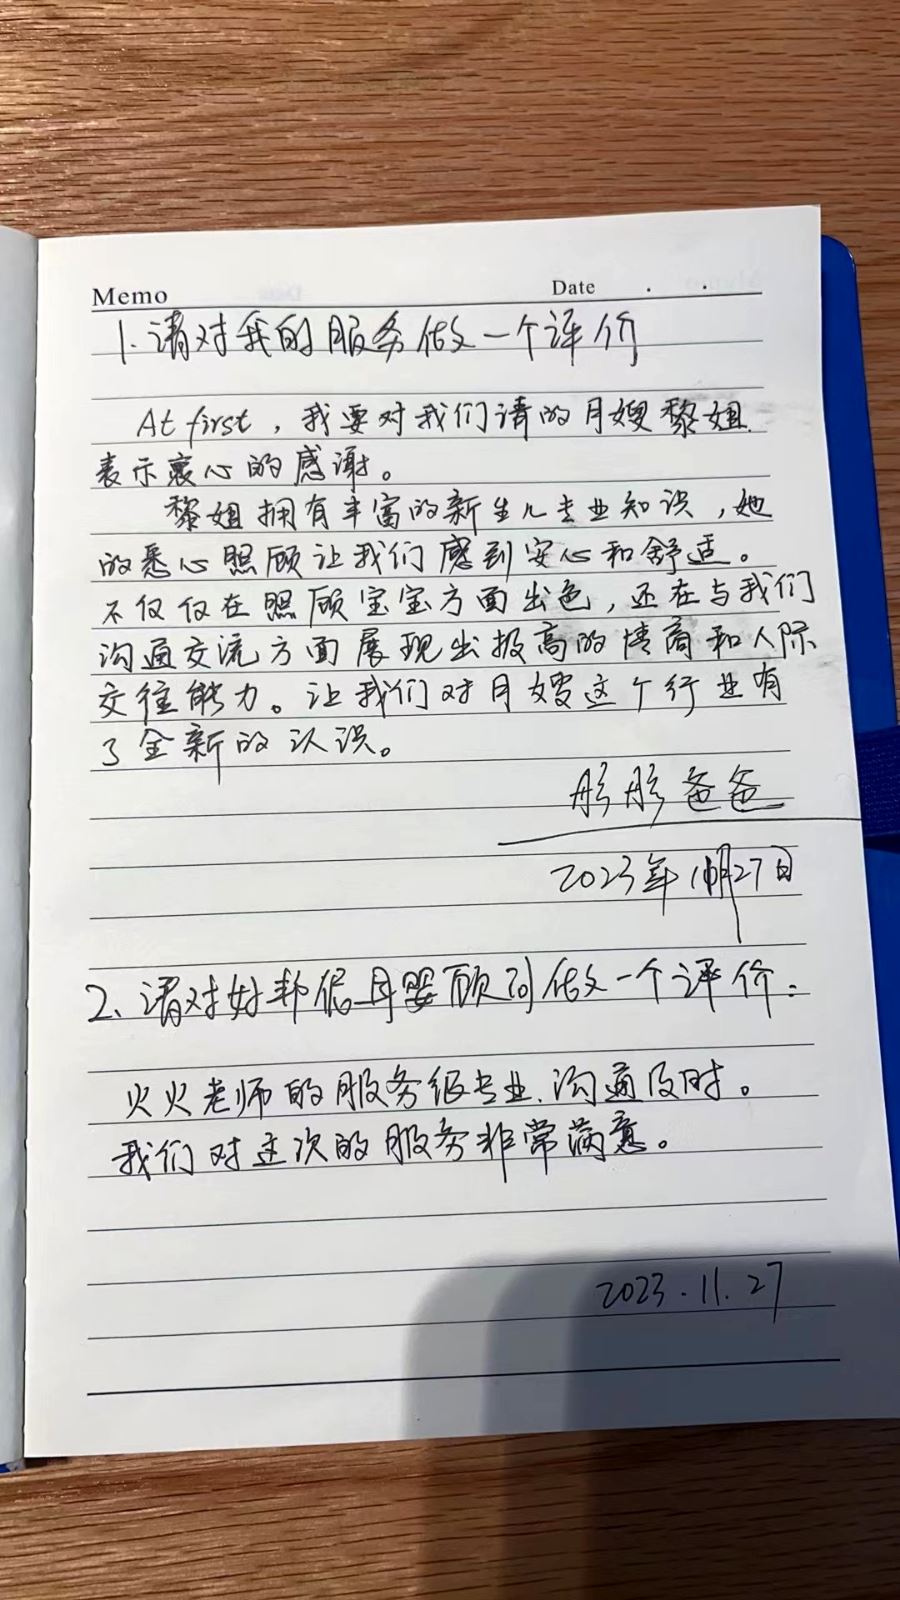 Memo Date . .
1.请对我的服务做一个评价
At first，我要对我们请的月嫂黎姐
表示衷心的感谢。
黎姐拥有丰富的新生儿专业知识，她
的悉心照顾让我们感到安心和舒适。
不仅仅在照顾宝宝方面出色，还在与我们
沟通交流方面展现出极高的情商和人际
交往能力。让我们对月嫂这个行业有
了全新的认识。
彤彤爸爸
2023年11月27日
2、请对好邦偲母婴顾问做一个评价：
火火老师的服务很专业、沟通及时。
我们对这次的服务非常满意。
2023.11.27